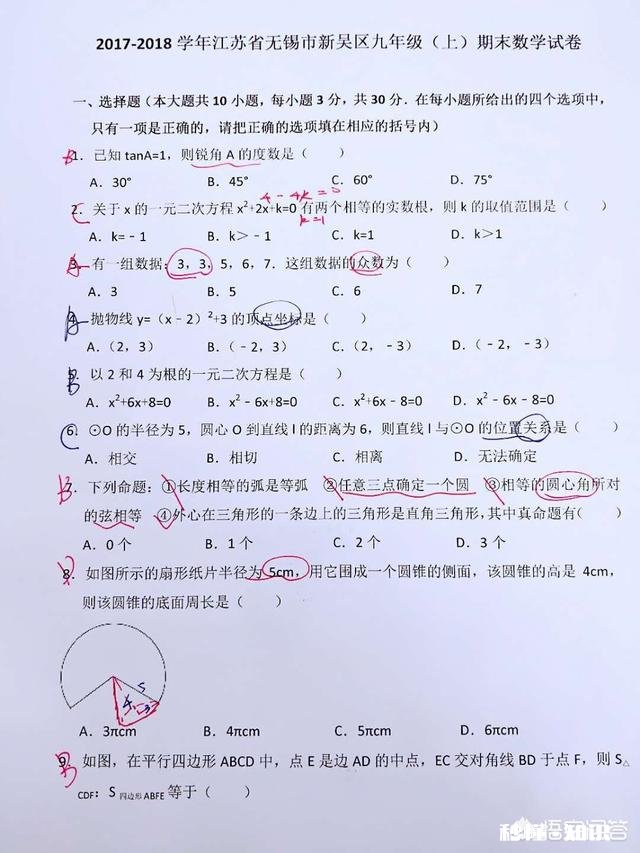 2017-2018 学年江苏省无锡市新吴区九年级（上）期末数学试卷
一、选择题（本大题共 10 小题，每小题 3 分，共 30 分．在每小题所给出的四个选项中，
只有一项是正确的，请把正确的选项填在相应的括号内）
B 1．已知 tanA=1，则锐角 A 的度数是（　　）
A．30°　B．45°　C．60°　D．75°
4-4k=0
C 2．关于 x 的一元二次方程 x²+2x+k=0 有两个相等的实数根，则 k 的取值范围是（　　）
k=1
A．k=﹣1　B．k＞﹣1　C．k=1　D．k＞1
A 3．有一组数据：3，3，5，6，7．这组数据的众数为（　　）
A．3　B．5　C．6　D．7
A 4．抛物线 y=（x﹣2）²+3 的顶点坐标是（　　）
A．（2，3）　B．（﹣2，3）　C．（2，﹣3）　D．（﹣2，﹣3）
B 5．以 2 和 4 为根的一元二次方程是（　　）
A．x²+6x+8=0　B．x²﹣6x+8=0　C．x²+6x﹣8=0　D．x²﹣6x﹣8=0
C 6．⊙O 的半径为 5，圆心 O 到直线 l 的距离为 6，则直线 l 与⊙O 的位置关系是（　　）
A．相交　B．相切　C．相离　D．无法确定
B 7．下列命题：①长度相等的弧是等弧　②任意三点确定一个圆　③相等的圆心角所对
的弦相等　④外心在三角形的一条边上的三角形是直角三角形，其中真命题有（　　）
A．0 个　B．1 个　C．2 个　D．3 个
8．如图所示的扇形纸片半径为 5cm，用它围成一个圆锥的侧面，该圆锥的高是 4cm，
则该圆锥的底面周长是（　　）
5
4
3
A．3πcm　B．4πcm　C．5πcm　D．6πcm
B 9．如图，在平行四边形 ABCD 中，点 E 是边 AD 的中点，EC 交对角线 BD 于点 F，则 S△
CDF：S 四边形 ABFE 等于（　　）
悟空问答
秒懂·知识